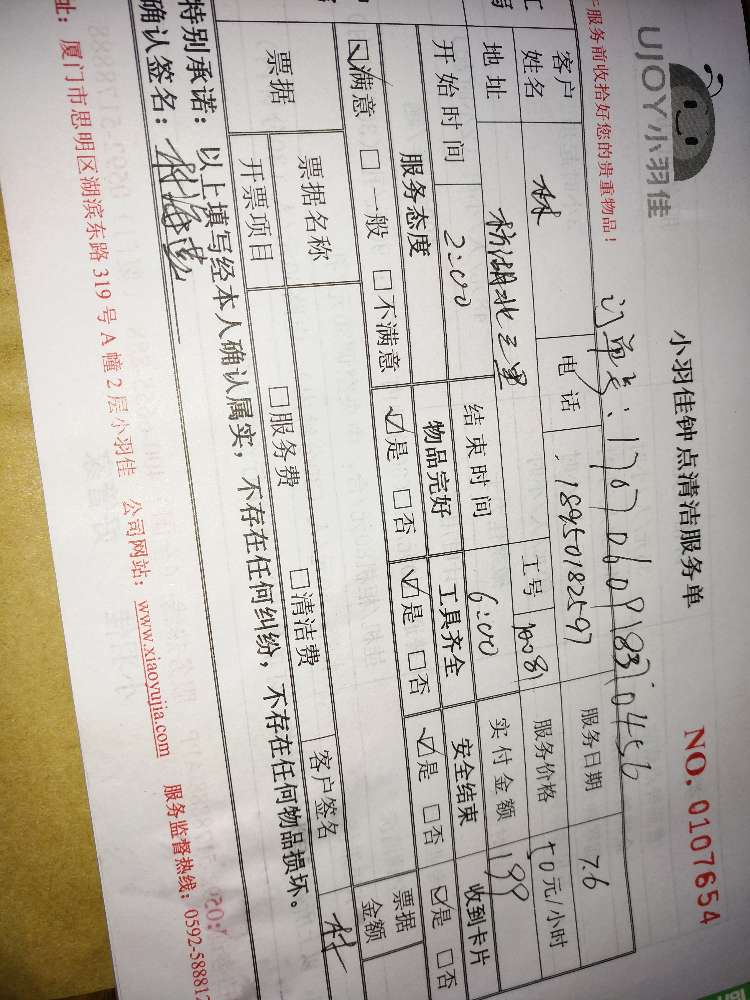 UJOY小羽佳
小羽佳钟点清洁服务单
NO. 0107654
服务前收拾好您的贵重物品！
订单号：
客户姓名 林 电话 18950182597 服务日期 7.6
地址 枋湖北三里 工号 服务价格 50元/小时
开始时间 2:00 结束时间 6:00 实付金额 199
服务态度 物品完好 工具齐全 安全结束 收到卡片
☑满意 □一般 □不满意 ☑是 □否 ☑是 □否 ☑是 □否 ☑是 □否
票据 票据名称 □服务费 □清洁费 票据金额
开票项目 客户签名 林
特别承诺：以上填写经本人确认属实，不存在任何纠纷，不存在任何物品损坏。
确认签名：林海
址：厦门市思明区湖滨东路319号A幢2层小羽佳 公司网站：www.xiaoyujia.com 服务监督热线：0592-588812